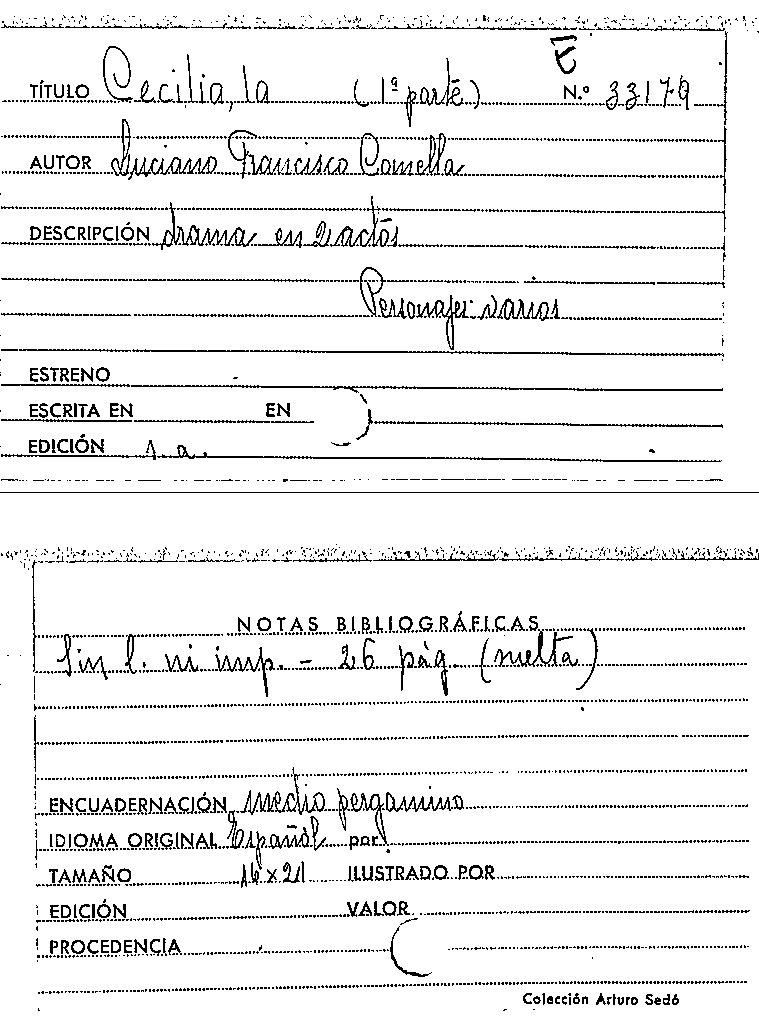 E
TÍTULO Cecilia, la (1ª parte) N.º 33179
AUTOR Luciano Francisco Comella
DESCRIPCIÓN drama en 2 actos
Personajes: varios
ESTRENO -
ESCRITA EN EN
EDICIÓN s. a.
NOTAS BIBLIOGRÁFICAS
Sin l. ni imp. - 26 pág. (suelta)
ENCUADERNACIÓN medio pergamino
IDIOMA ORIGINAL Español por
TAMAÑO 16 x 21 ILUSTRADO POR
EDICIÓN VALOR
PROCEDENCIA
Colección Arturo Sedó